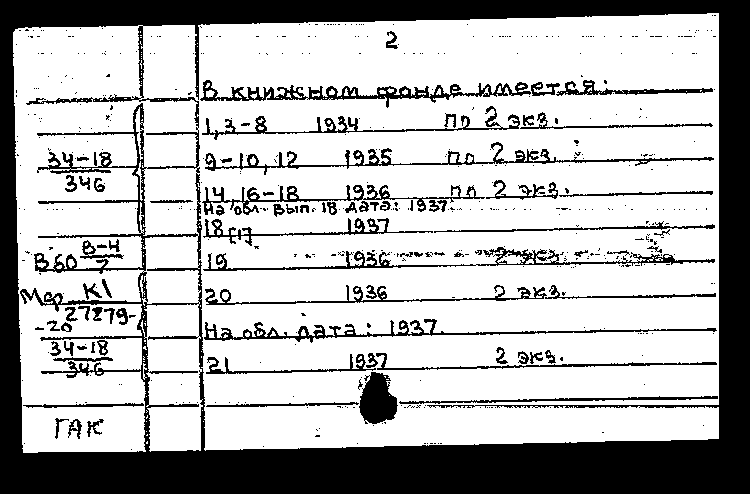 2
В книжном фонде имеется:
1,3-8 1934 по 2 экз.
34-18
346
9-10, 12 1935 по 2 экз.
14, 16-18 1936 по 2 экз.
На обл. вып. 18 дата: 1937.
18 1937
В60 В-4
7
19 1936 2 экз.
К1
27279-
-20
20 1936 2 экз.
На обл. дата: 1937.
34-18
346
21 1937 2 экз.
ГАК